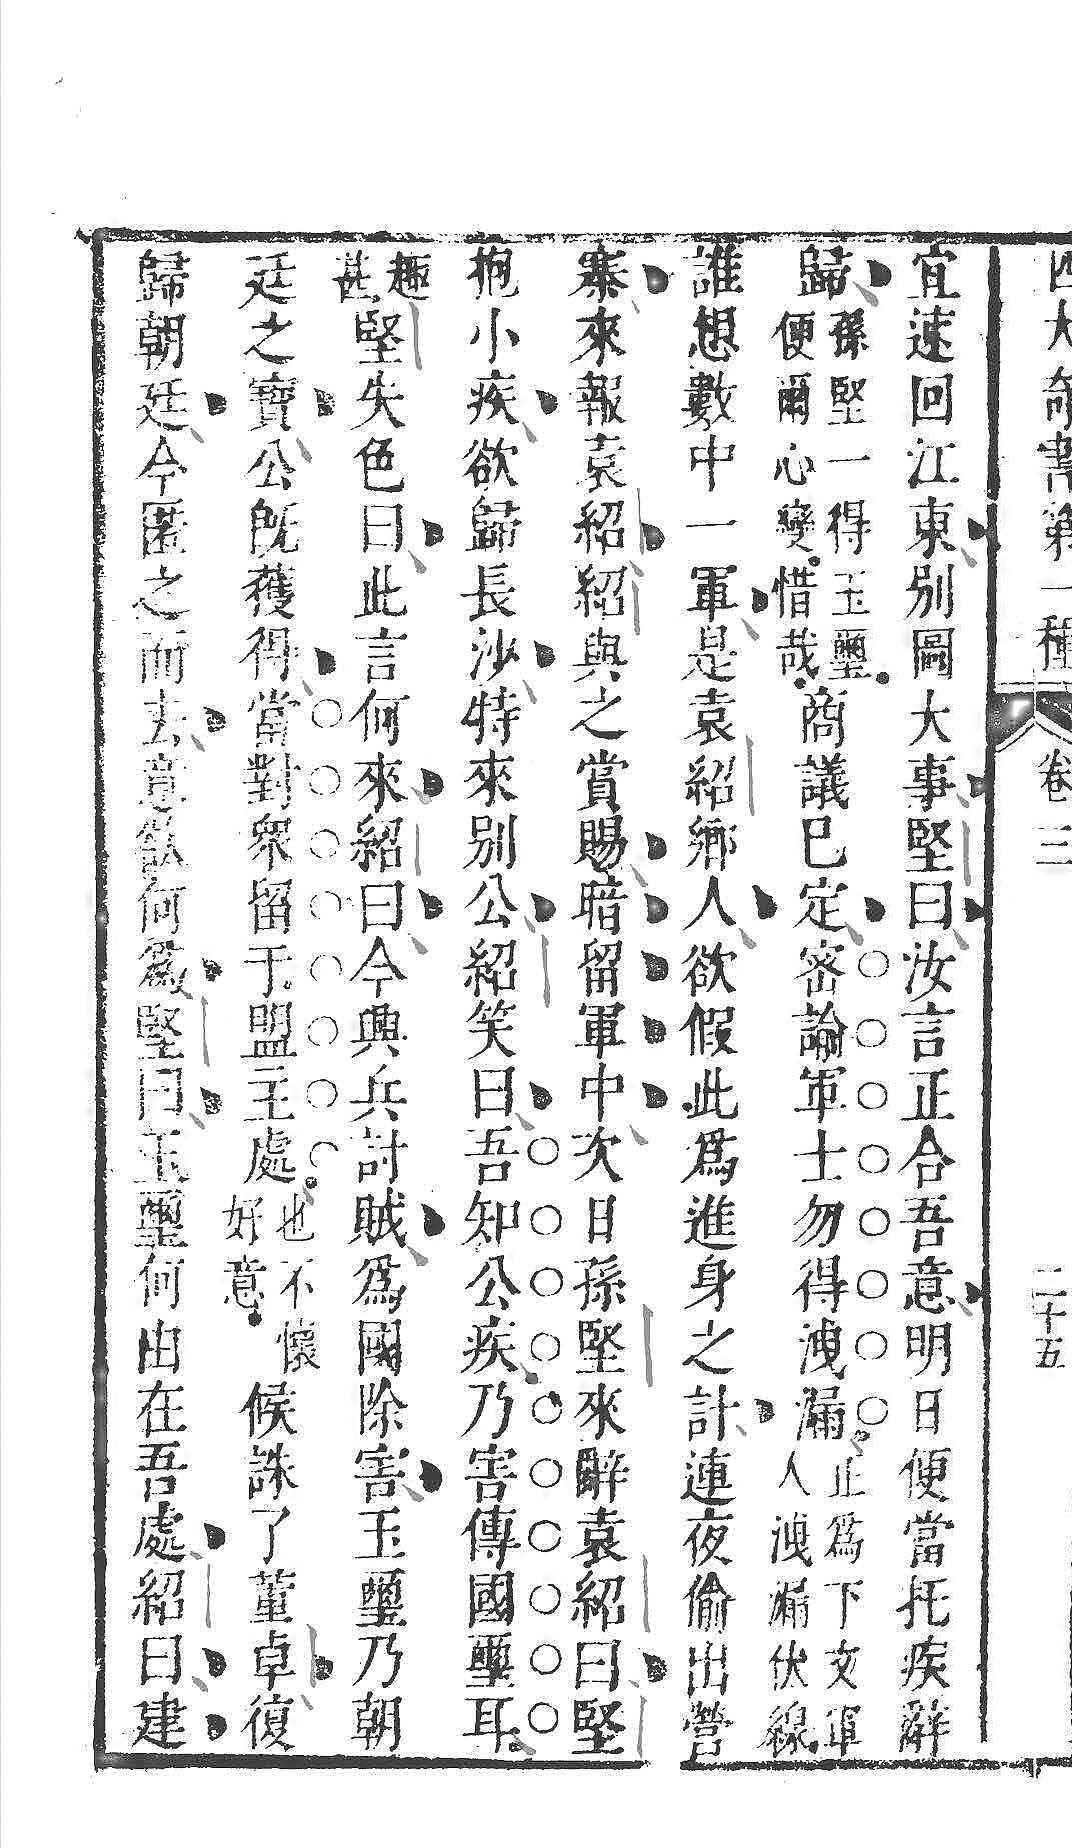 四大奇書第一種 卷三 二十五
宜速回江東別圖大事堅曰汝言正合吾意明日便當托疾辭
歸孫堅一得玉璽便爾心變惜哉商議已定密諭軍士勿得洩漏正爲下文軍人洩漏伏線
誰想數中一軍是袁紹鄉人欲假此爲進身之計連夜偷出營
寨來報袁紹紹與之賞賜暗留軍中次日孫堅來辭袁紹曰堅
抱小疾欲歸長沙特來別公紹笑曰吾知公疾乃害傳國璽耳
趣甚堅失色曰此言何來紹曰今興兵討賊爲國除害玉璽乃朝
廷之寶公既獲得當對衆留于盟主處也不懷好意候誅了董卓復
歸朝廷今匿之而去意欲何爲堅曰玉璽何由在吾處紹曰建